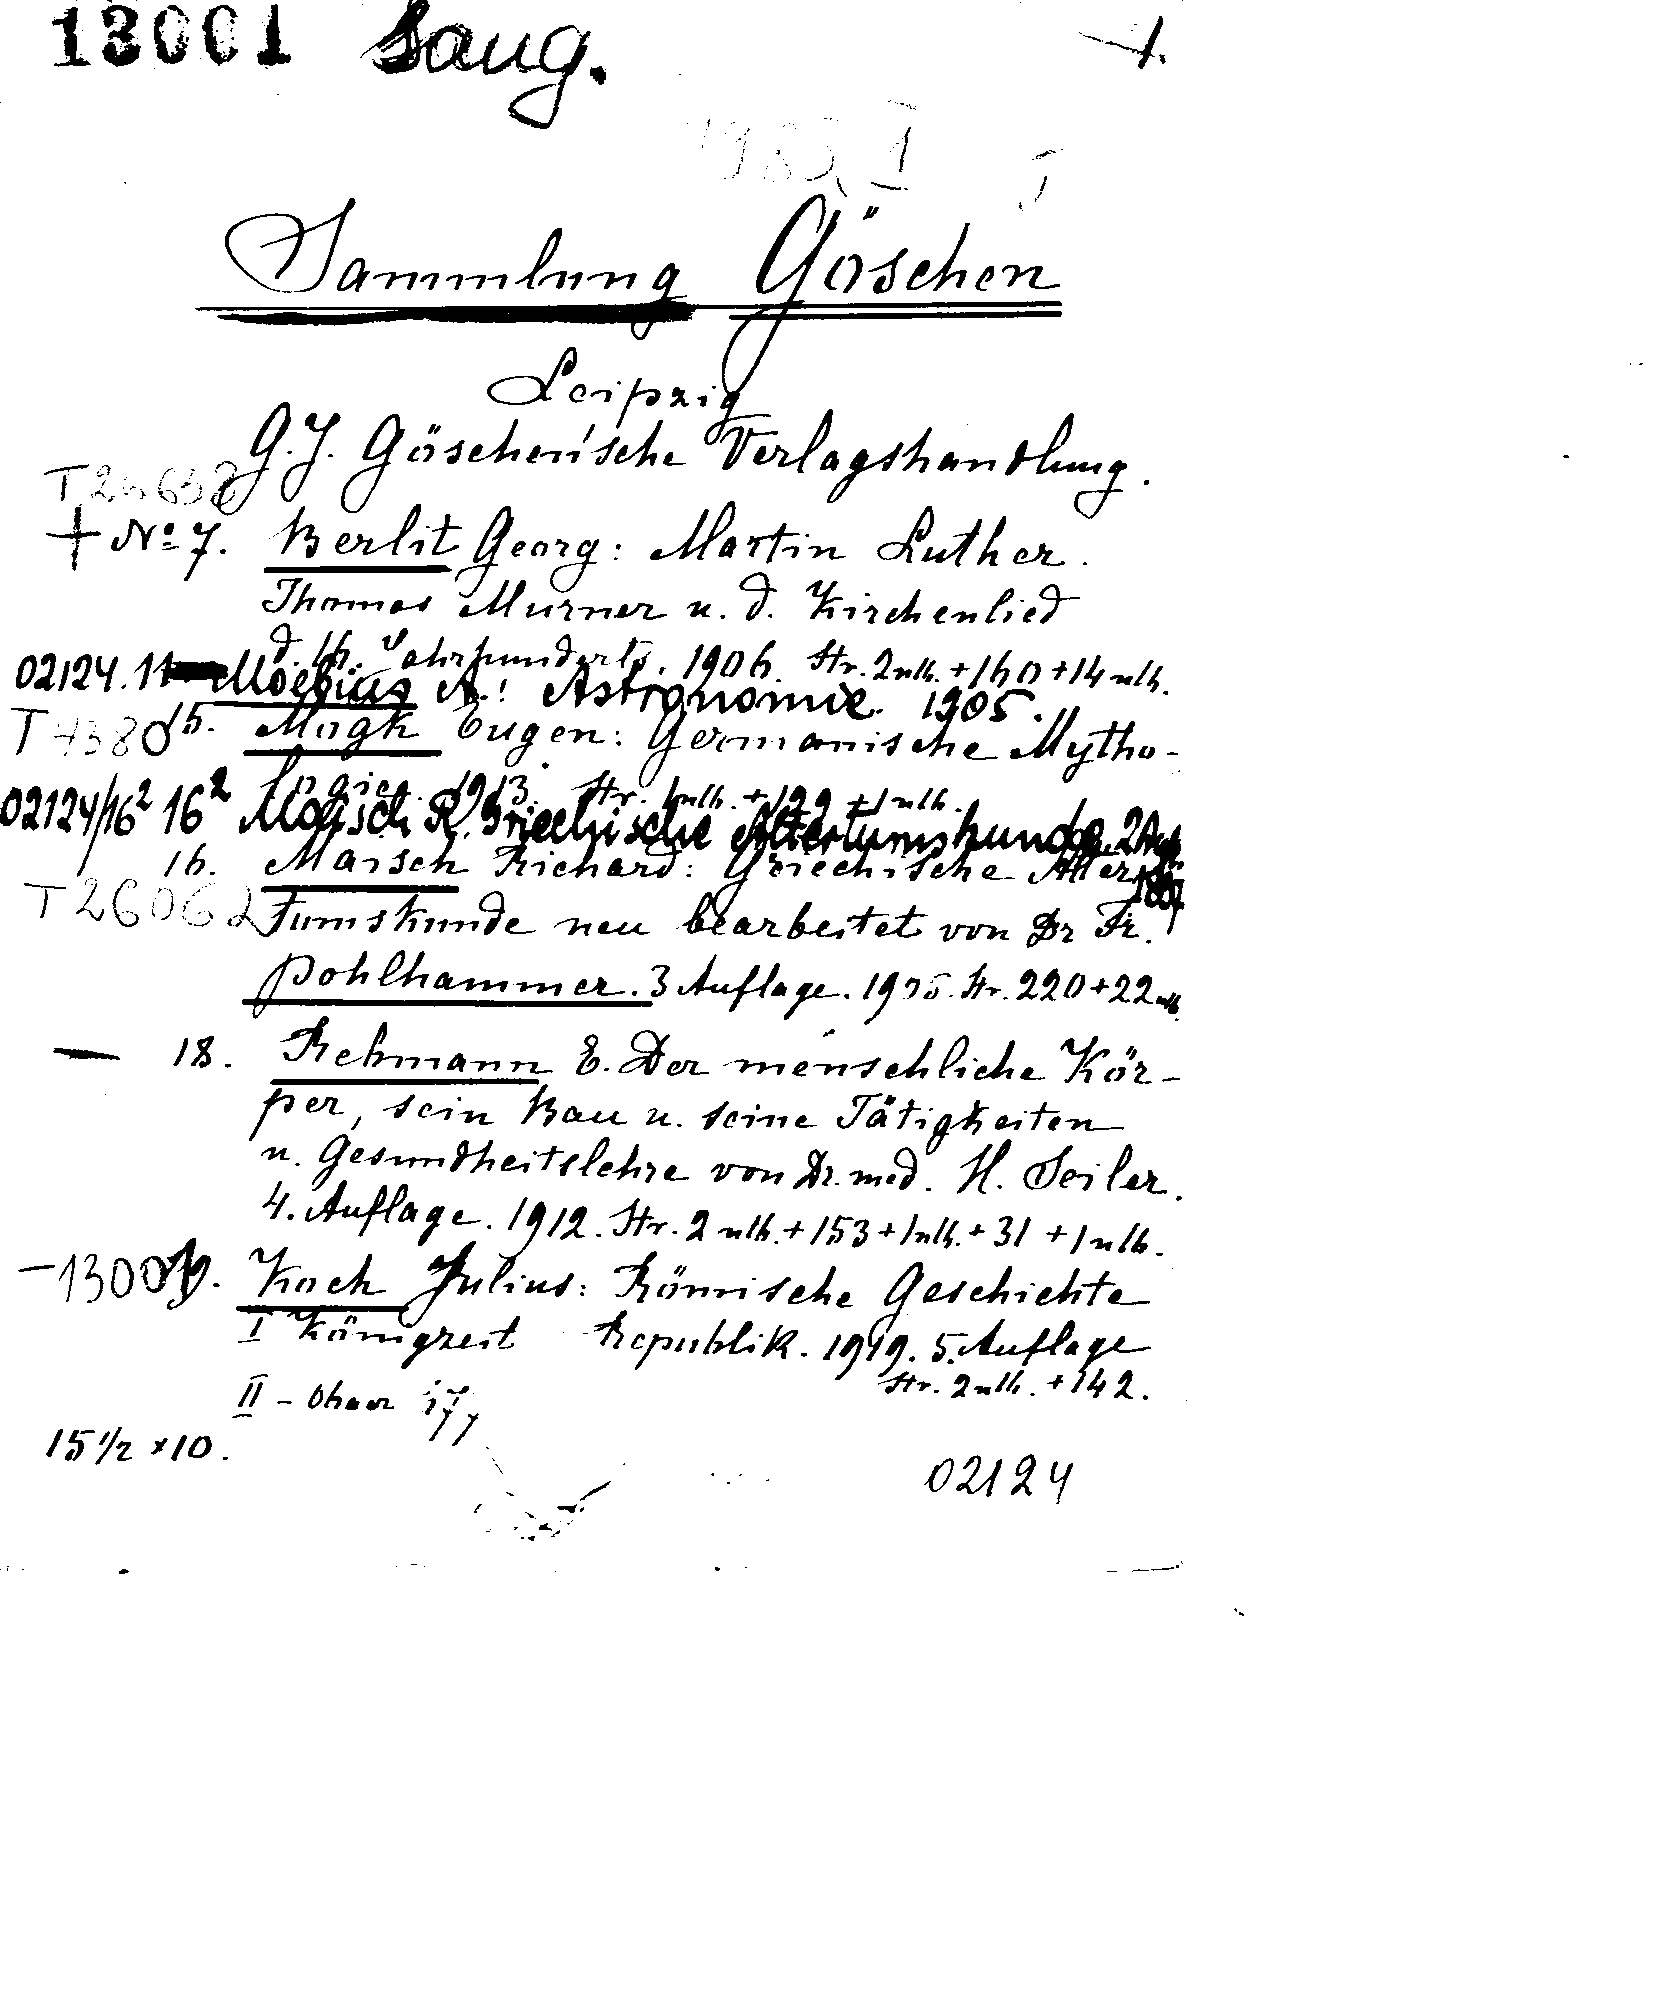 13001 Saug. 1.
Sammlung Göschen
Leipzig
G. J. Göschen'sche Verlagshandlung.
+ No 7. Berlit Georg: Martin Luther.
Thomas Murner u. d. Kirchenlied
d. 16. Jahrhunderts. 1906. Str. 2 nlb. + 160 + 14 nlb.
02124. 11 Moebius A.: Astronomie. 1905.
15. Mogk Eugen: Germanische Mytho-
logie. 1913. Str. 1 nlb. + 129 + 1 nlb.
02124/16² 16² Maisch R. Griechische Altertumskunde. 2 Aufl.
16. Maisch Richard: Griechische Alter-
T 26062 tumskunde neu bearbeitet von Dr Fr.
Pohlhammer. 3 Auflage. 1905. Str. 220 + 22 nlb.
— 18. Rebmann E. Der menschliche Kör-
per, sein Bau u. seine Tätigkeiten
u. Gesundheitslehre von Dr. med. H. Seiler.
4. Auflage. 1912. Str. 2 nlb. + 153 + 1 nlb. + 31 + 1 nlb.
Koch Julius: Römische Geschichte
I Königzeit Republik. 1919. 5. Auflage
Str. 2 nlb. + 142.
II -
15 1/2 x 10.
02124